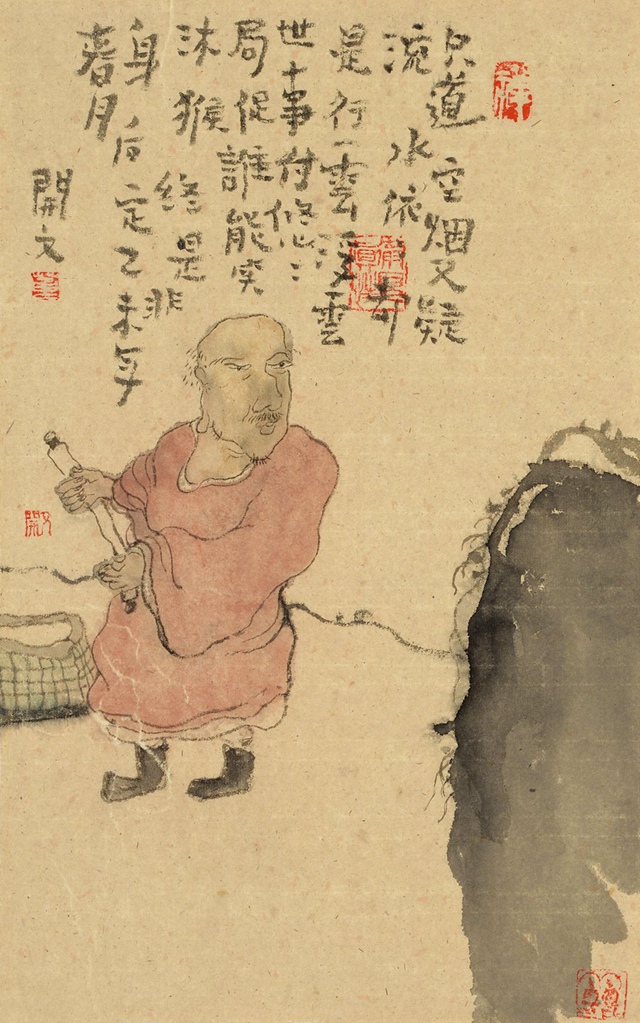 只道空烟又疑
流水依
是行雲浮雲
世事付悠〻
局促誰能笑
沐猴終是非
身后定乙未年
春月
開文